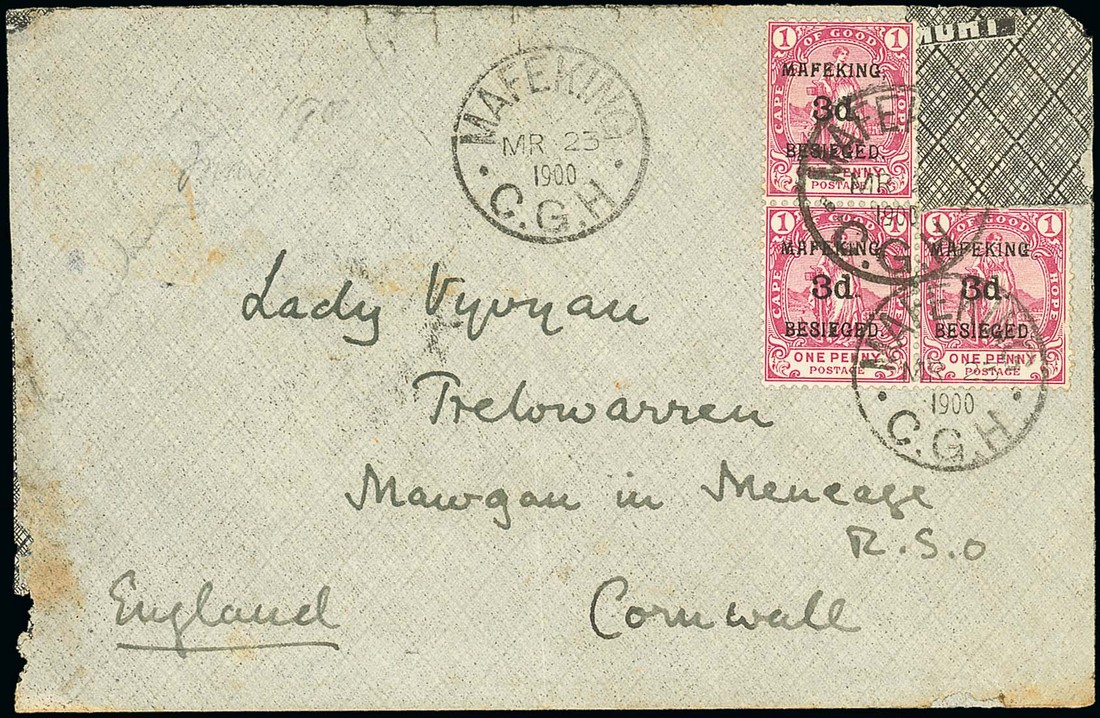 MAFEKING
MR 23
1900
C.G.H.
1 OF GOOD 1
CAPE
HOPE
MAFEKING,
3d.
BESIEGED.
ONE PENNY
POSTAGE
1 OF GOOD 1
CAPE
HOPE
MAFEKING,
3d.
BESIEGED.
ONE PENNY
POSTAGE
OF GOOD 1
CAPE
HOPE
MAFEKING,
3d.
BESIEGED.
ONE PENNY
POSTAGE
MR
1900
C.G.H.
MAFEKING
MR 23
1900
C.G.H.
Lady Vyvyan
Trelowarren
Mawgan in Meneage
R.S.O
England
Cornwall